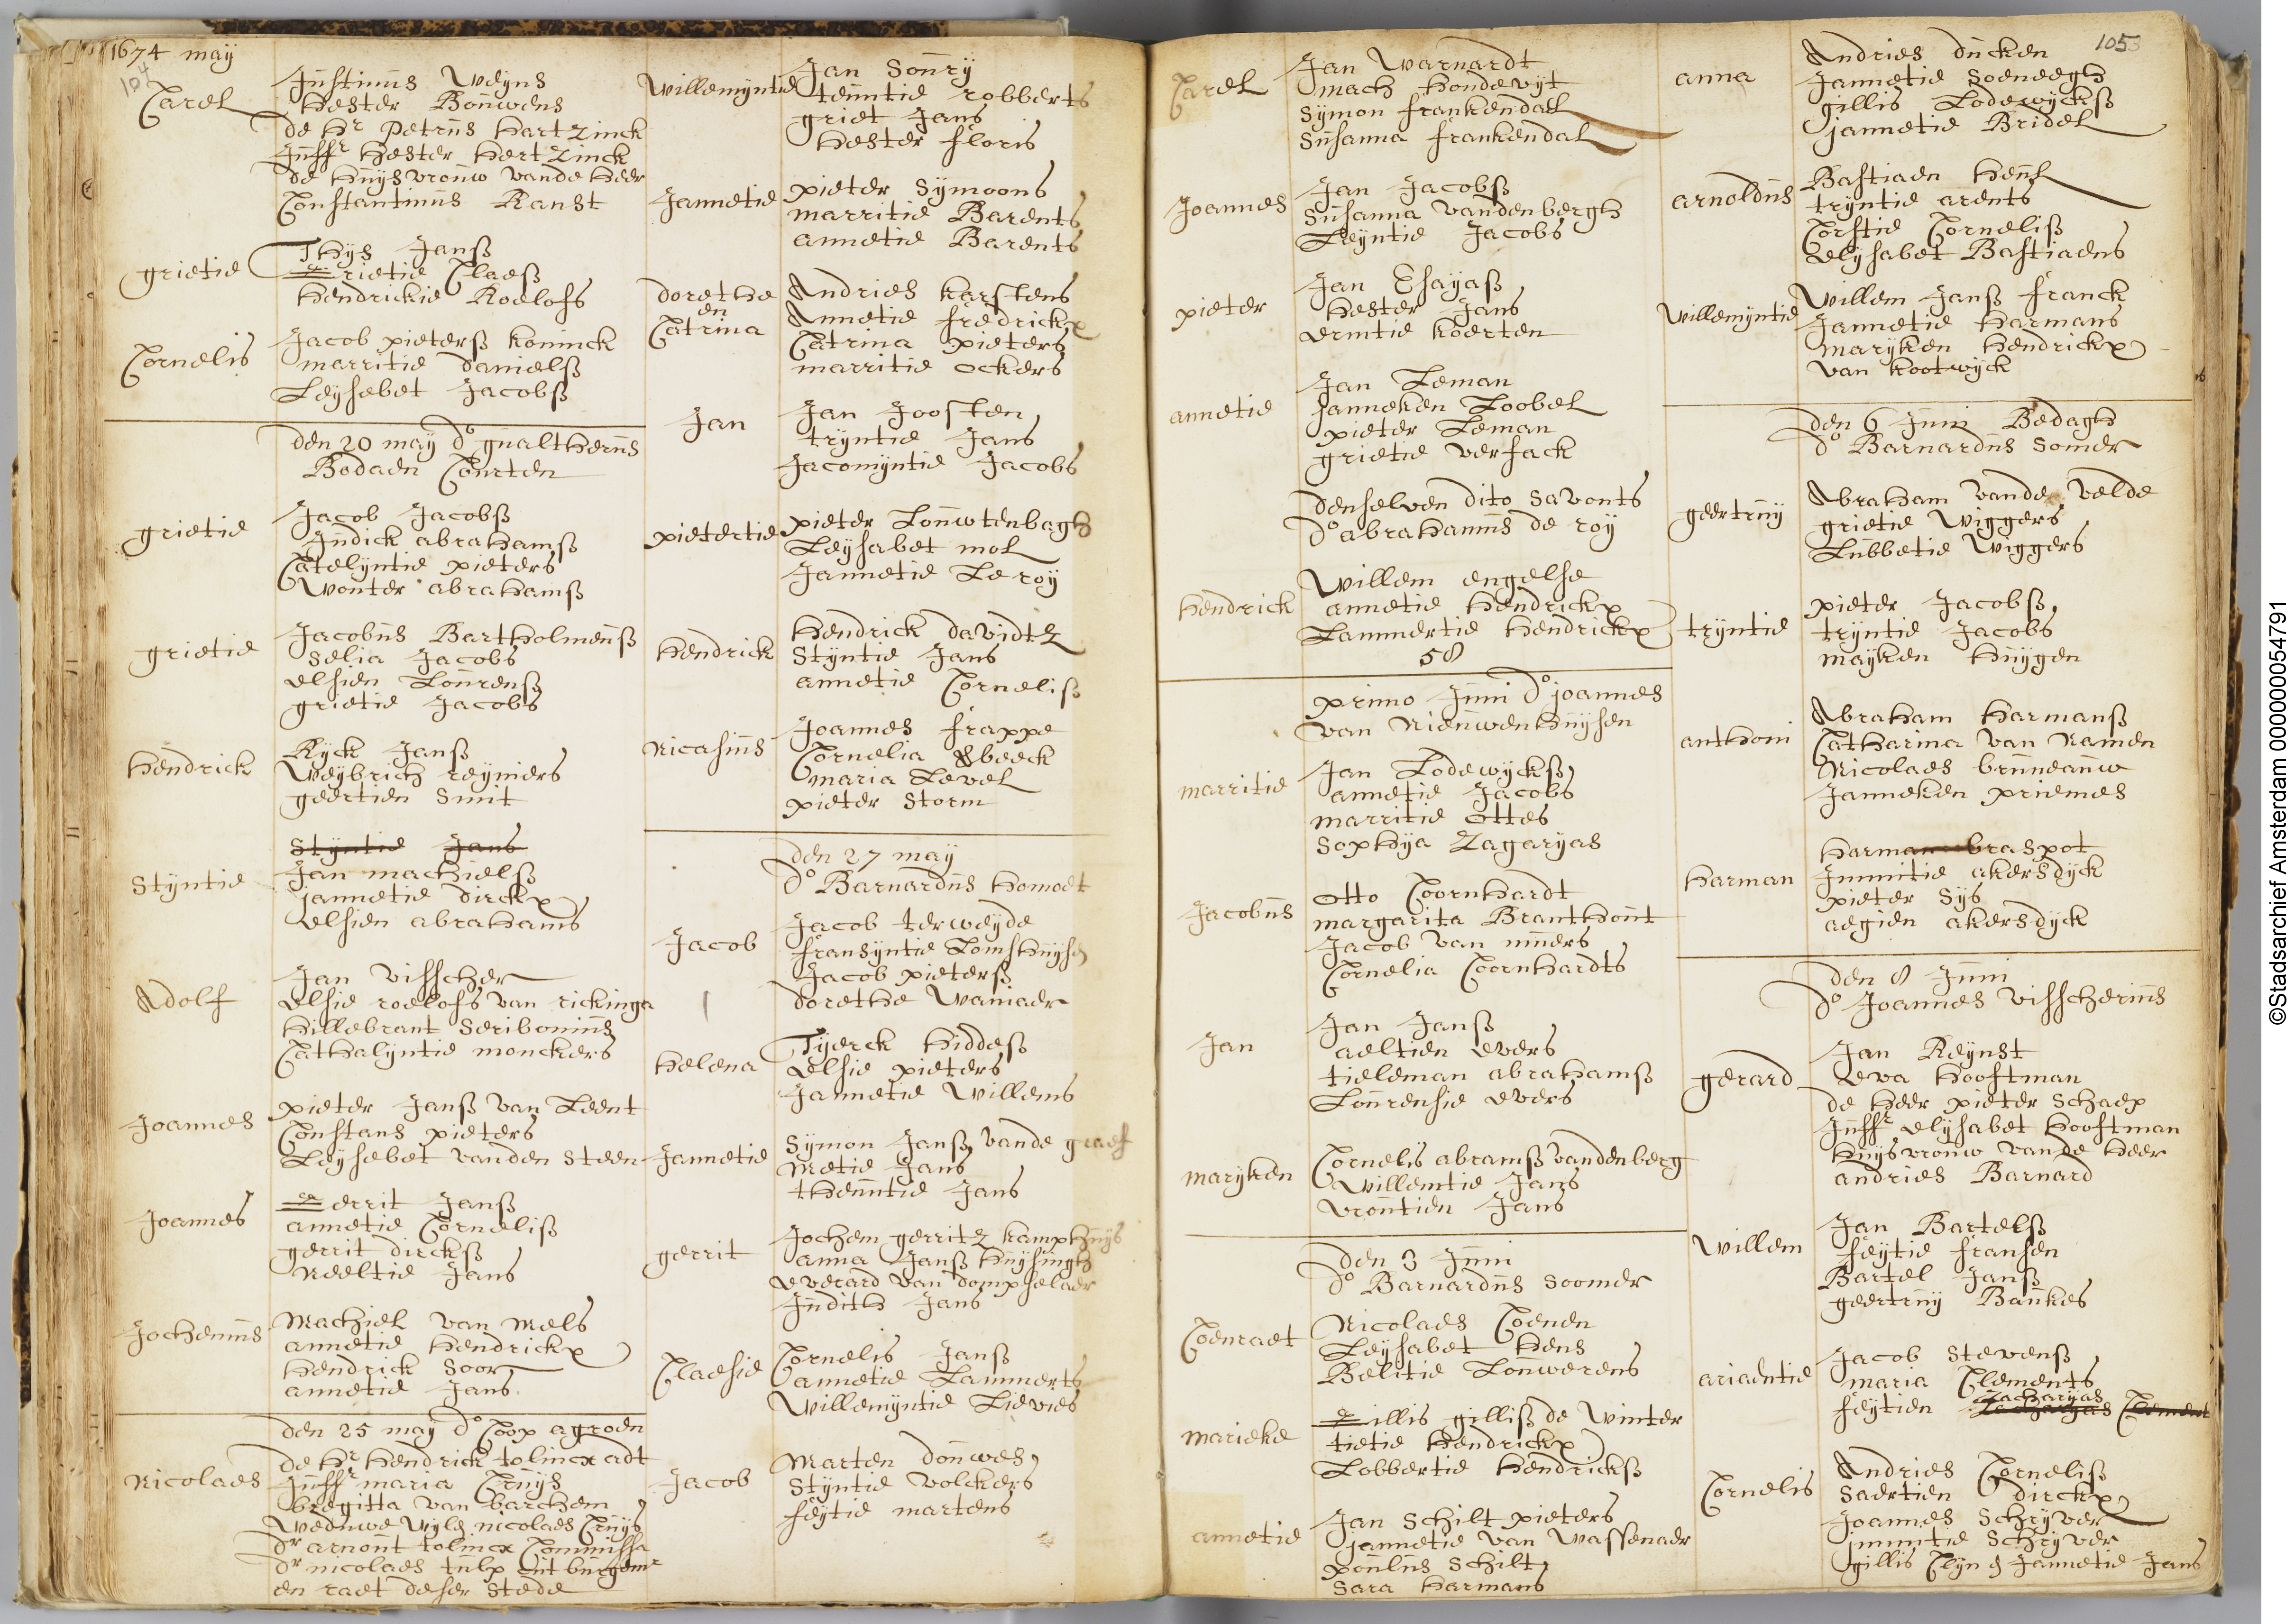 1674 may
104
Carel
Justinus Weyns
Hester Bouwens
de Hr Petrus Hartzinck
Juffr Hester Hertzinck
de Huysvrouw vande Heer
Constantinus Ranst
grietie
Thijs Janß
Grietie Claesß
Hendrickie Roelofs
Cornelis
Jacob pietersß koninck
marritie danielsß
Leysebet Jacobsß
den 20 may do gualtherus
Bodaen Courten
grietie
Jacob Jacobsß
Judick abrahamsß
Catelyntie pieters
Wouter abrahamsß
grietie
Jacobus Bartholmeusß
Selia Jacobs
elsien Lourensß
grietie Jacobs
Hendrick
Ryck Janß
Weybrich reyniers
geertien Smit
Styntie
Styntie Jans
Jan machielsß
jannetie dirckx
elsien abrahams
Adolf
Jan visscher
elsie roelofs van rickinga
Hillebrant Seribonius
Cathalyntie monckers
Joannes
pieter Janß van Leent
Constans pieters
Leysebet vanden Steen
Joannes
Gerrit Janß
annetie Cornelisß
gerrit dircksß
Neeltie Jans
Jochemus
Machiel van Mels
annetie Hendrickx
Hendrick Soor
annetie Jans
den 25 may do Coop a groen
Nicolaes
de Hr Hendrick tolincx adt
Juffr maria Cruys
bregitta van barchem
Weduwe Wyle nicolaes Cruys
dr arnout tolincx Commissa
dr nicolaes tulp uit burgemr
en raet deser Stede
Willemyntie
Jan Soury
teuntie robberts
griet Jans
Hester floris
Jannetie
pieter Symoons
marritie Barents
annetie Barents
dorethe
en
Catrina
Andries karstens
Annetie fredrickx
Catrina pieters
marritie ockers
Jan
Jan Joosten
tryntie Jans
Jacomyntie Jacobs
pietertie
pieter Louwtenbagh
Leysabet mol
Jannetie Le roy
Hendrick
Hendrick davidtz
Styntie Jans
annetie Cornelisß
Nicasius
Joannes frappe
Cornelia beeck
maria Level
pieter Storm
den 27 may
do Barnardus Homoet
Jacob
Jacob terweyde
fransyntie Lomshuysen
Jacob pietersß
dorethe Waniaer
Helena
Tyerck Hiddesß
elsie pieters
Jannetie Willems
Jannetie
Symon Jansß vande graef
Metie Jans
theuntie Jans
gerrit
Jochem gerritz kamphuys
anna Jansß Huysingh
everard van dompselaer
Judith Jans
Claesie
Cornelis Janß
annetie Lammerts
Willemyntie Lievies
Jacob
Marten douwes
Styntie volckers
feytie martens
105
Carel
Jan Warnardt
mach Hondevyt
Symon frankendael
Susanna frankendal
Joannes
Jan Jacobsß
Susanna vandenbergh
Leyntie Jacobs
pieter
Jan Esayasß
Hester Jans
ermtie koerten
annetie
Jan Leman
janneken Loobel
pieter Leman
grietie verfack
denselven dito Savonts
do abrahamus de roy
Hendrick
Willem engelse
annetie Hendrickx
Lammertie Hendrickx
58
primo Juni do joannes
van Nieuwenhuysen
marritie
Jan Lodewycksß
annetie Jacobs
marritie ottes
Sophya Zagaryas
Jacobus
otto Coornhardt
margarita Branthout
Jacob van
Cornelia Coornhardts
Jan
Jan Janß
aeltien evers
tieleman abrahamsß
Lourensie evers
maryken
Cornelis abramsß vandenberg
Willemtie Jans
vroutien Jans
den 3 Juni
do Barnardus Soomer
Coenraet
Nicolaes Coenen
Leysabet Hens
Belitie Louwerens
marieke
Gillis gillisß de Winter
tietie Hendrickx
Lobbertie Hendricksß
annetie
Jan Schilt pieters
jannetie van Wassenaer
poulus Schilt
Sara Harmans
anna
Andries ducken
Jannetie Soeneegh
gillis Lodewycksß
jannetie Bridel
arnoldus
Bastiaen Heus
tryntie arents
Corstie Cornelisß
elysabet Bastiaens
Willemyntie
Willem Jansß franck
Jannetie Harmans
maryken Hendrickx
van kootwyck
den 6 Juni Bedagh
do Barnardus Somer
geertruy
Abraham vande velde
grietie Wiggers
Lubbetie Wiggers
tryntie
pieter Jacobsß
tryntie Jacobs
mayken Huygen
anthoni
Abraham Harmansß
Catharina van Namen
Nicolaes bruneauw
Janneken priemes
Harman
Harman braspot
Jnmitie akersdyck
pieter Sys
aegien akersdyck
den 8 Juni
do Joannes visscherius
gerard
Jan Reynst
eva Hooftman
de Heer pieter Schaep
Juffr elysabet Hooftman
Huysvrouw vande Heer
andries Barnard
Willem
Jan Bartelsß
feytie fransen
Bartel Jansß
geertruy Baukes
ariaentie
Jacob Stevensß
maria Clements
Zacharyas
feytien Zacharyas Clement
Cornelis
Andries Cornelisß
Saertien dirckx
Joannes Schryver
jmmtie Schryver
gillis Clyn en Jannetie Jans
©Stadsarchief Amsterdam 000000054791